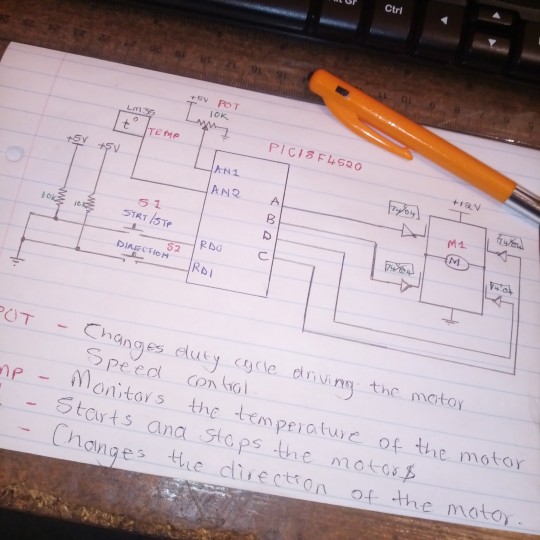 Ctrl
+5V POT
10K
LM35
t°
TEMP
+5V
+5V
PIC18F4520
AN1
AN2
10K
10K
S1
STRT/STP
S2
DIRECTION
RD0
RD1
A
B
D
C
+12V
M1
M
POT - Changes duty cycle driving the motor
Speed control
MP - Monitors the temperature of the motor
- Starts and stops the motor$
- Changes the direction of the motor.